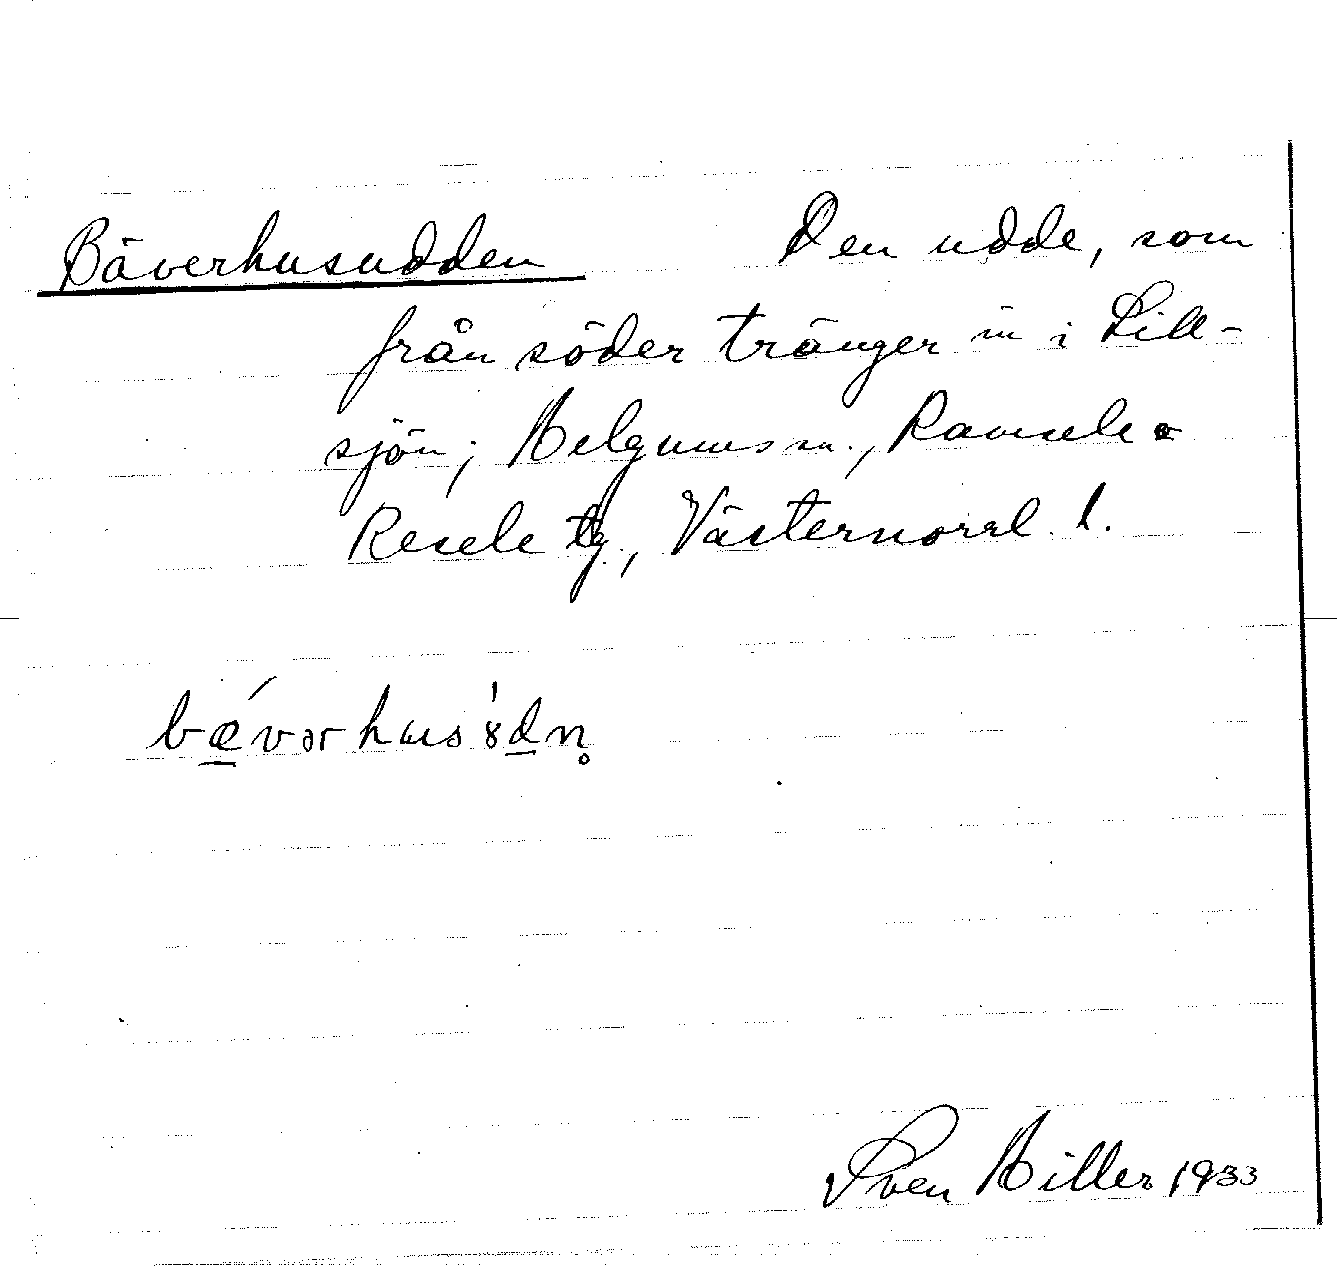 Bäverhusudden Den udde, som
från söder tränger in i Lill-
sjön; Helgums sn., Ramsele o
Resele tg, Västernorrl. l.
bǽvərhusꞌ8dn̥
Sven Hiller 1933